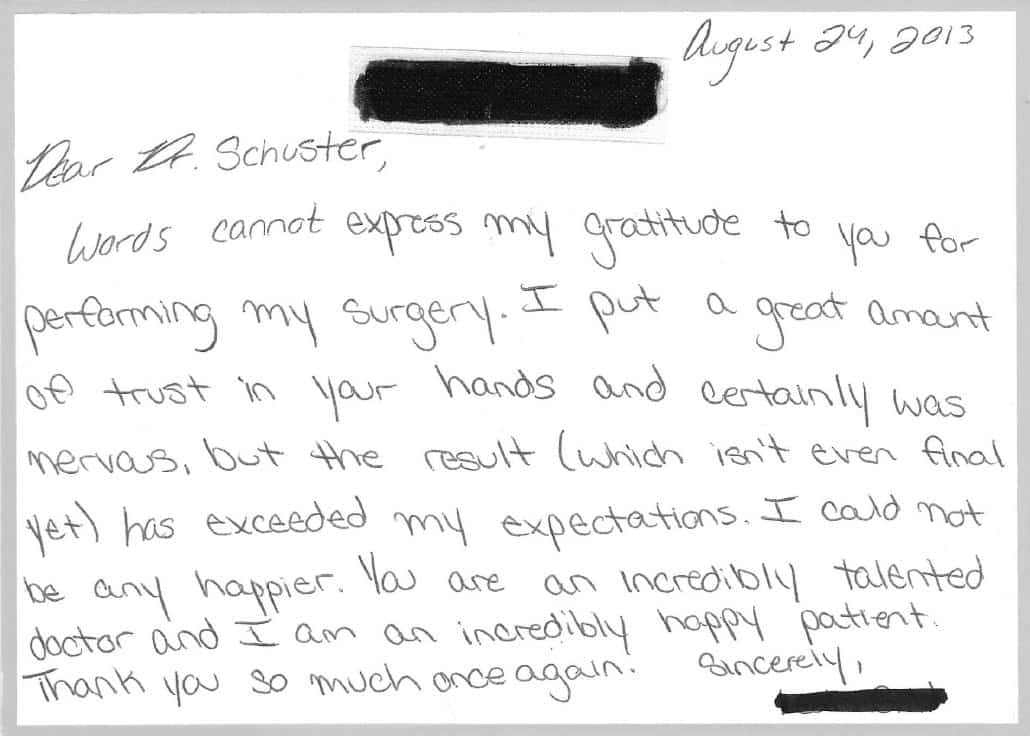 August 24, 2013
Dear Dr. Schuster,
Words cannot express my gratitude to you for
performing my surgery. I put a great amount
of trust in your hands and certainly was
nervous, but the result (which isn't even final
yet) has exceeded my expectations. I could not
be any happier. You are an incredibly talented
doctor and I am an incredibly happy patient.
Thank you so much once again. Sincerely,